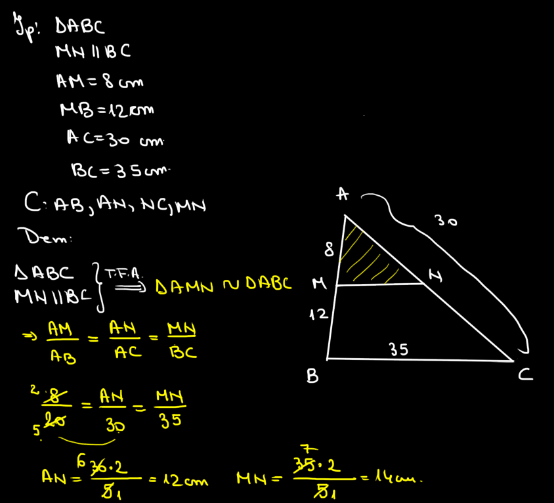 Ip: ΔABC
MN || BC
AM = 8 cm
MB = 12 cm
AC = 30 cm
BC = 35 cm
C: AB, AN, NC, MN
Dem:
ΔABC
MN || BC } T.F.A. ⟹ ΔAMN ~ ΔABC
⇒ AM/AB = AN/AC = MN/BC
2 8/20 5 = AN/30 = MN/35
AN = 6 30·2/5 1 = 12 cm MN = 7 35·2/5 1 = 14 cm.
A
30
8
M N
12
35
B C